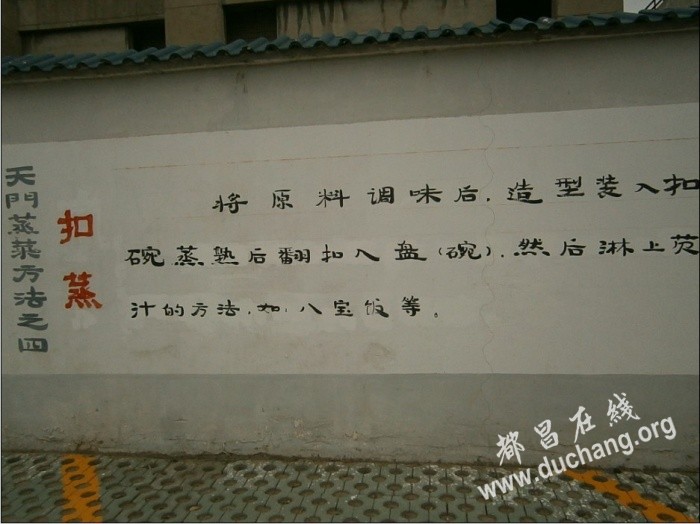 天門蒸菜方法之四
扣蒸
将原料调味后，造型装入扣
碗蒸熟后翻扣入盘（碗），然后淋上芡
汁的方法，如：八宝饭等。
都昌在线
www.duchang.org